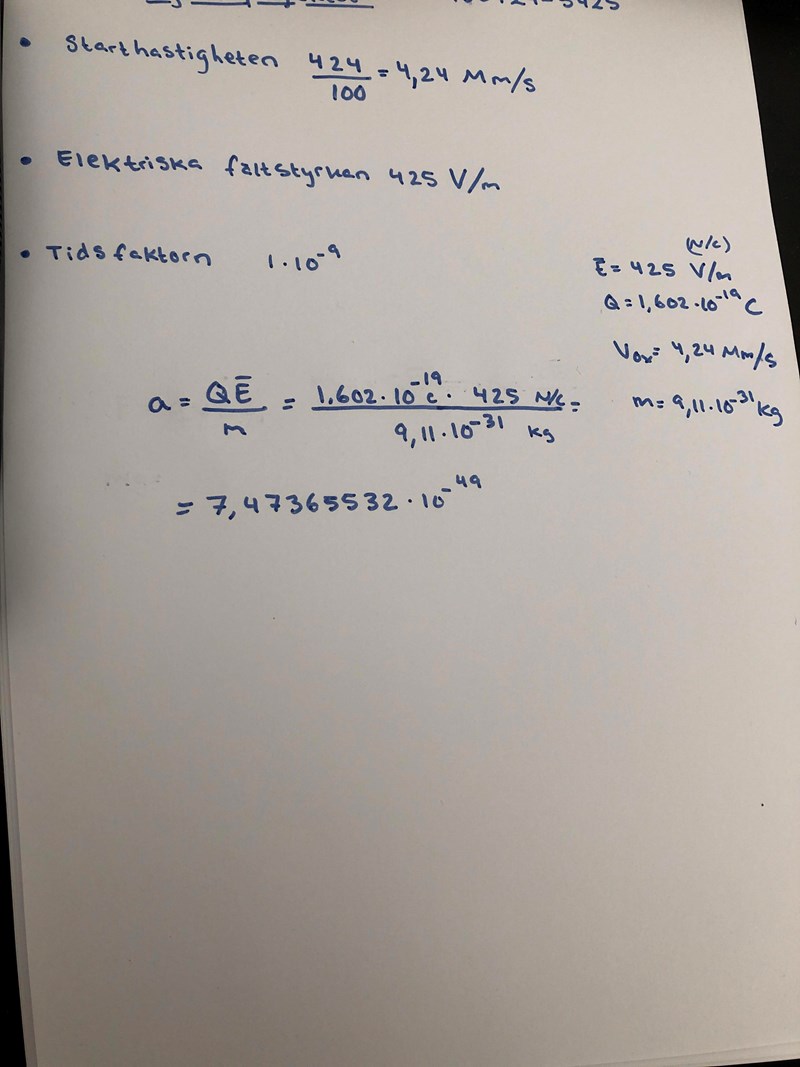 • Starthastigheten 424/100 = 4,24 Mm/s
• Elektriska fältstyrkan 425 V/m
• Tidsfaktorn 1·10⁻⁹
(N/C)
Ē = 425 V/m
Q = 1,602·10⁻¹⁹ C
V₀ₓ = 4,24 Mm/s
m = 9,11·10⁻³¹ kg
a = QĒ/m = 1,602·10⁻¹⁹ C · 425 N/C / 9,11·10⁻³¹ kg =
= 7,47365532·10⁻⁴⁹